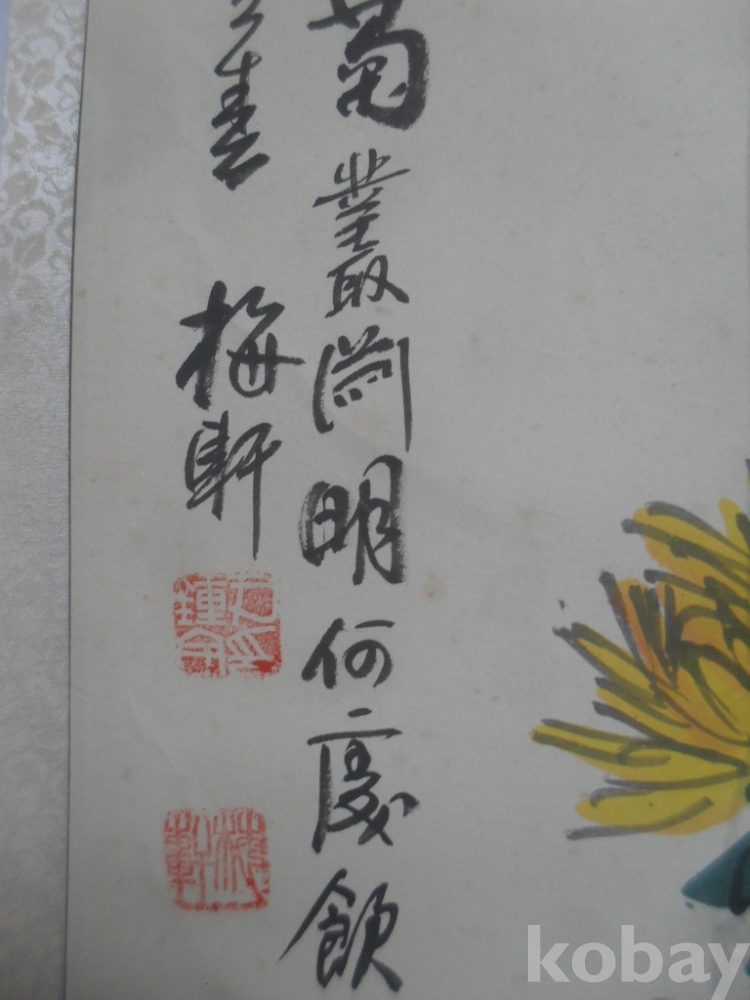 菊叢淵明何處飲
梅軒
梅軒
kobay